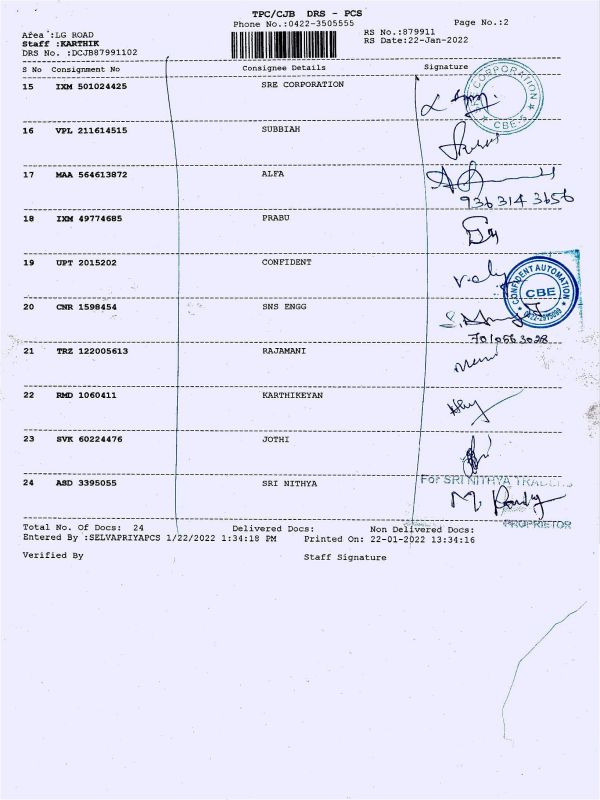 TPC/CJB DRS - PCS
Phone No.:0422-3505555
Page No.:2
Area :LG ROAD
RS No.:879911
Staff :KARTHIK
RS Date:22-Jan-2022
DRS No. :DCJB87991102
S No Consignment No Consignee Details Signature
15 IXM 501024425 SRE CORPORATION
CORPORATION
CBE-5
16 VPL 211614515 SUBBIAH
17 MAA 564613872 ALFA
936 314 3656
18 IXM 49774685 PRABU
19 UPT 2015202 CONFIDENT
CONFIDENT AUTOMATION
CBE
20 CNR 1598454 SNS ENGG
21 TRZ 122005613 RAJAMANI
22 RMD 1060411 KARTHIKEYAN
23 SVK 60224476 JOTHI
24 ASD 3395055 SRI NITHYA
For SRI NITHYA TRADERS
PROPRIETOR
Total No. Of Docs: 24 Delivered Docs: Non Delivered Docs:
Entered By :SELVAPRIYAPCS 1/22/2022 1:34:18 PM Printed On: 22-01-2022 13:34:16
Verified By Staff Signature